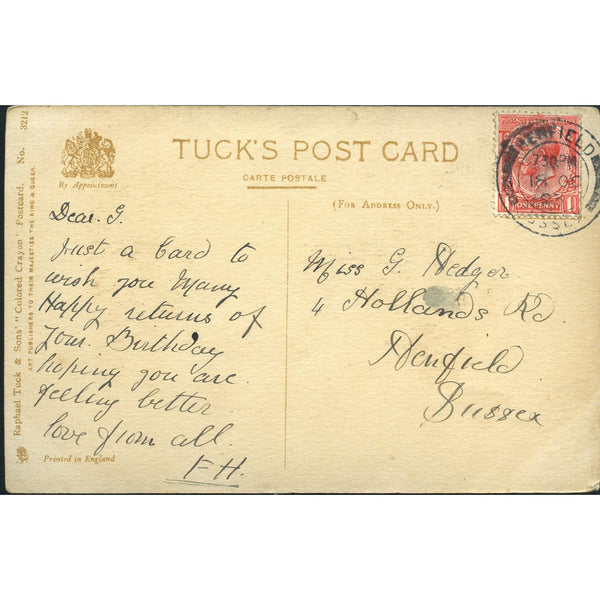 TUCK'S POST CARD
CARTE POSTALE
(FOR ADDRESS ONLY.)
By Appointment
Raphael Tuck & Sons' "Colored Crayon" Postcard. No. 3212
ART PUBLISHERS TO THEIR MAJESTIES THE KING & QUEEN.
Dear. G.
Just a Card to
wish you Many
Happy returns of
your. Birthday
hoping you are
feeling better
love from all.
F.H.
Printed in England
HENFIELD
7 30 PM
18 OC
SUSSEX
POSTAGE
ONE PENNY
1
Miss G. Hedger
4 Hollands Rd.
Henfield
Sussex